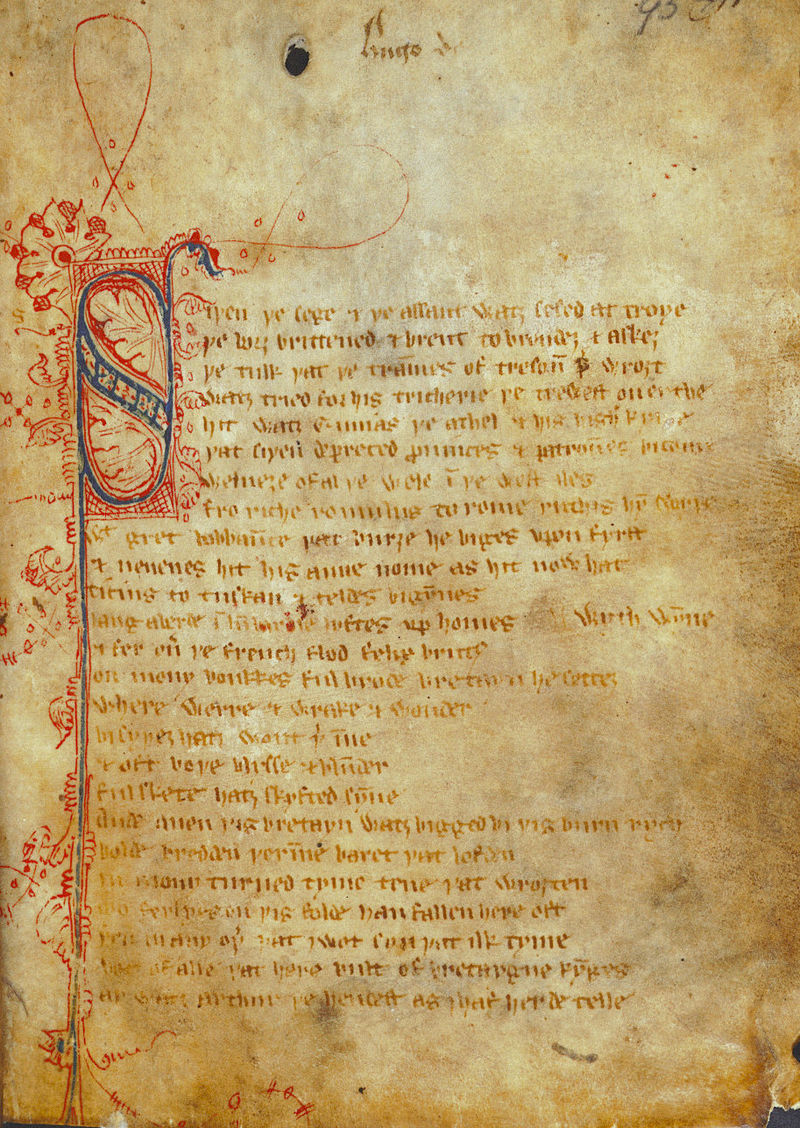 Hugo de
Siþen þe sege & þe assaut watȝ sesed at troye
þe borȝ brittened & brent to brondeȝ & askeȝ
þe tulk þat þe trāmes of tresoū þ̄ wroȝt
watȝ tried for his tricherie þe trewest on erthe
hit watȝ ennias þe athel & his highe kynde
þat siþen depreced prouinces & patroūes bicome
welneȝe of al þe wele ī þe west iles
fro riche romulus to rome ricchis hȳ swyþe
gret bobbaūce þat burȝe he biges vpon fyrst
& neuenes hit his aune nome as hit now hat
ticius to tuskan & teldes bigȳnes
langaberde ī lumbardie lyftes vp homes
& fer oū þe french flod felix brutus
on mony bonkkes ful brode bretayn he setteȝ
wyth wȳne
where werre & wrake & wonder
bi syþeȝ hatȝ wont þ̄ īne
& oft boþe blysse & blūder
ful skete hatȝ skyfted sȳne
Ande quen þis bretayn watȝ bigged bi þis burn rych
bolde bredden þerīne baret þat lofden
in mony turned tyme tene þat wroȝten
mo ferlyes on þis folde han fallen here oft
þen in any oþ̄ þat I wot syn þat ilk tyme
bot of alle þat here bult of bretaygne kȳges
ay watȝ arthur þe hendest as I haf herde telle